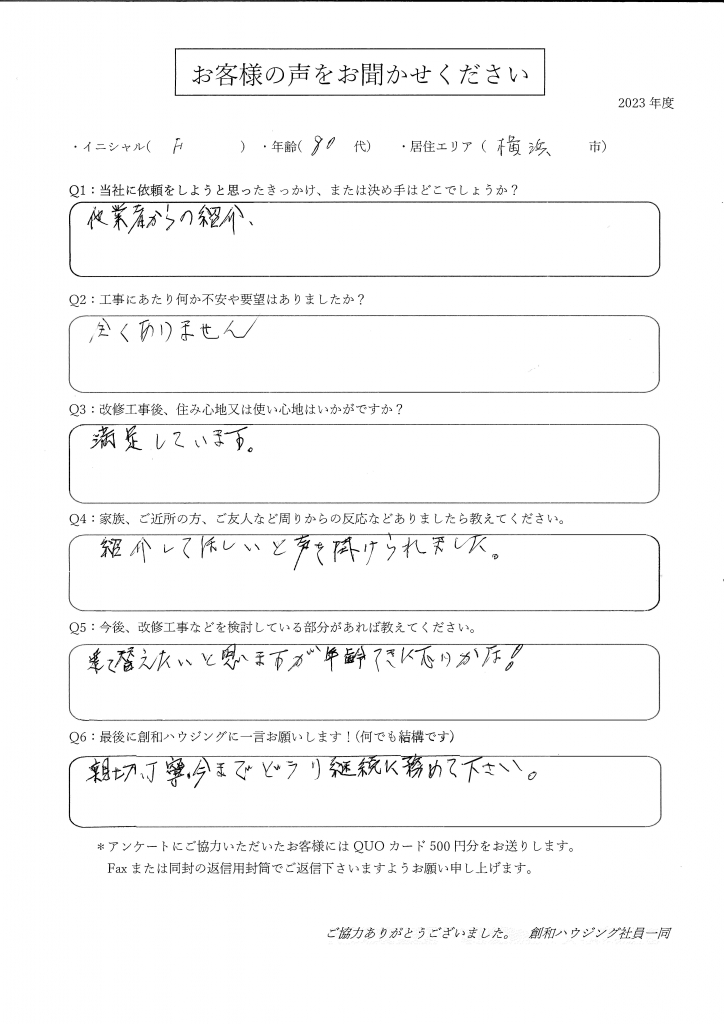 お客様の声をお聞かせください
2023 年度
・イニシャル( F ) ・年齢( 80 代) ・居住エリア ( 横浜 市)
Q1：当社に依頼をしようと思ったきっかけ、または決め手はどこでしょうか？
他業者からの紹介、
Q2：工事にあたり何か不安や要望はありましたか？
全くありません
Q3：改修工事後、住み心地又は使い心地はいかがですか？
満足しています。
Q4：家族、ご近所の方、ご友人など周りからの反応などありましたら教えてください。
紹介してほしいと声を掛けられました。
Q5：今後、改修工事などを検討している部分があれば教えてください。
建て替えたいと思いますが年齢てきに
Q6：最後に創和ハウジングに一言お願いします！(何でも結構です)
親切、丁寧、今までどうり継続に務めて下さい。
＊アンケートにご協力いただいたお客様には QUO カード 500 円分をお送りします。
Fax または同封の返信用封筒でご返信下さいますようお願い申し上げます。
ご協力ありがとうございました。 創和ハウジング社員一同